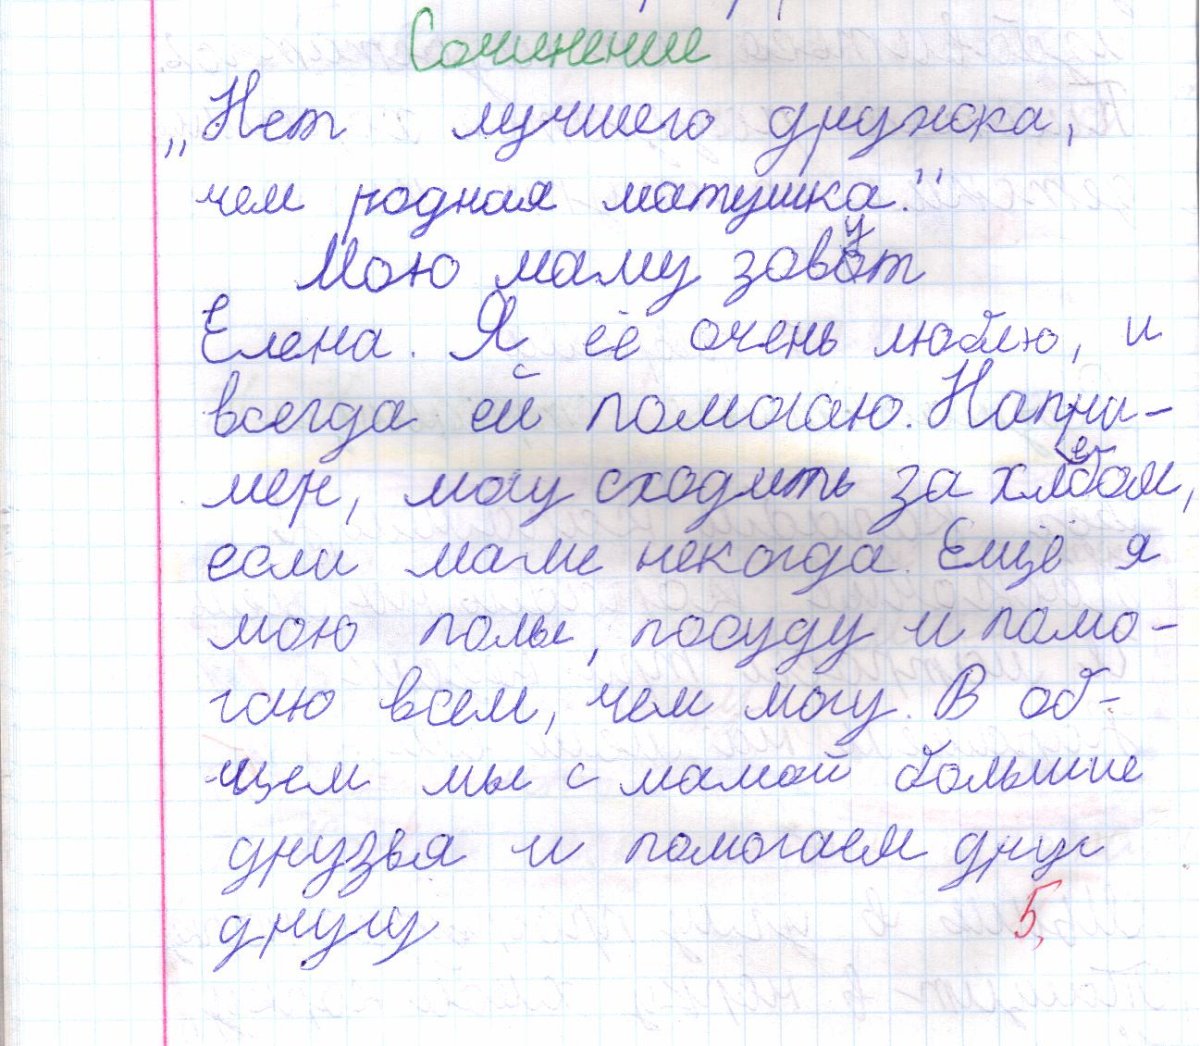 Сочинение
„Нет лучшего дружка,
чем родная матушка."
Мою маму зовут
Елена. Я её очень люблю, и
всегда ей помогаю. Напри-
мер, могу сходить за хлебом,
если маме некогда. Ещё я
мою полы, посуду и помо-
гаю всем, чем могу. В об-
щем мы с мамой большие
друзья и помогаем друг
другу
5,